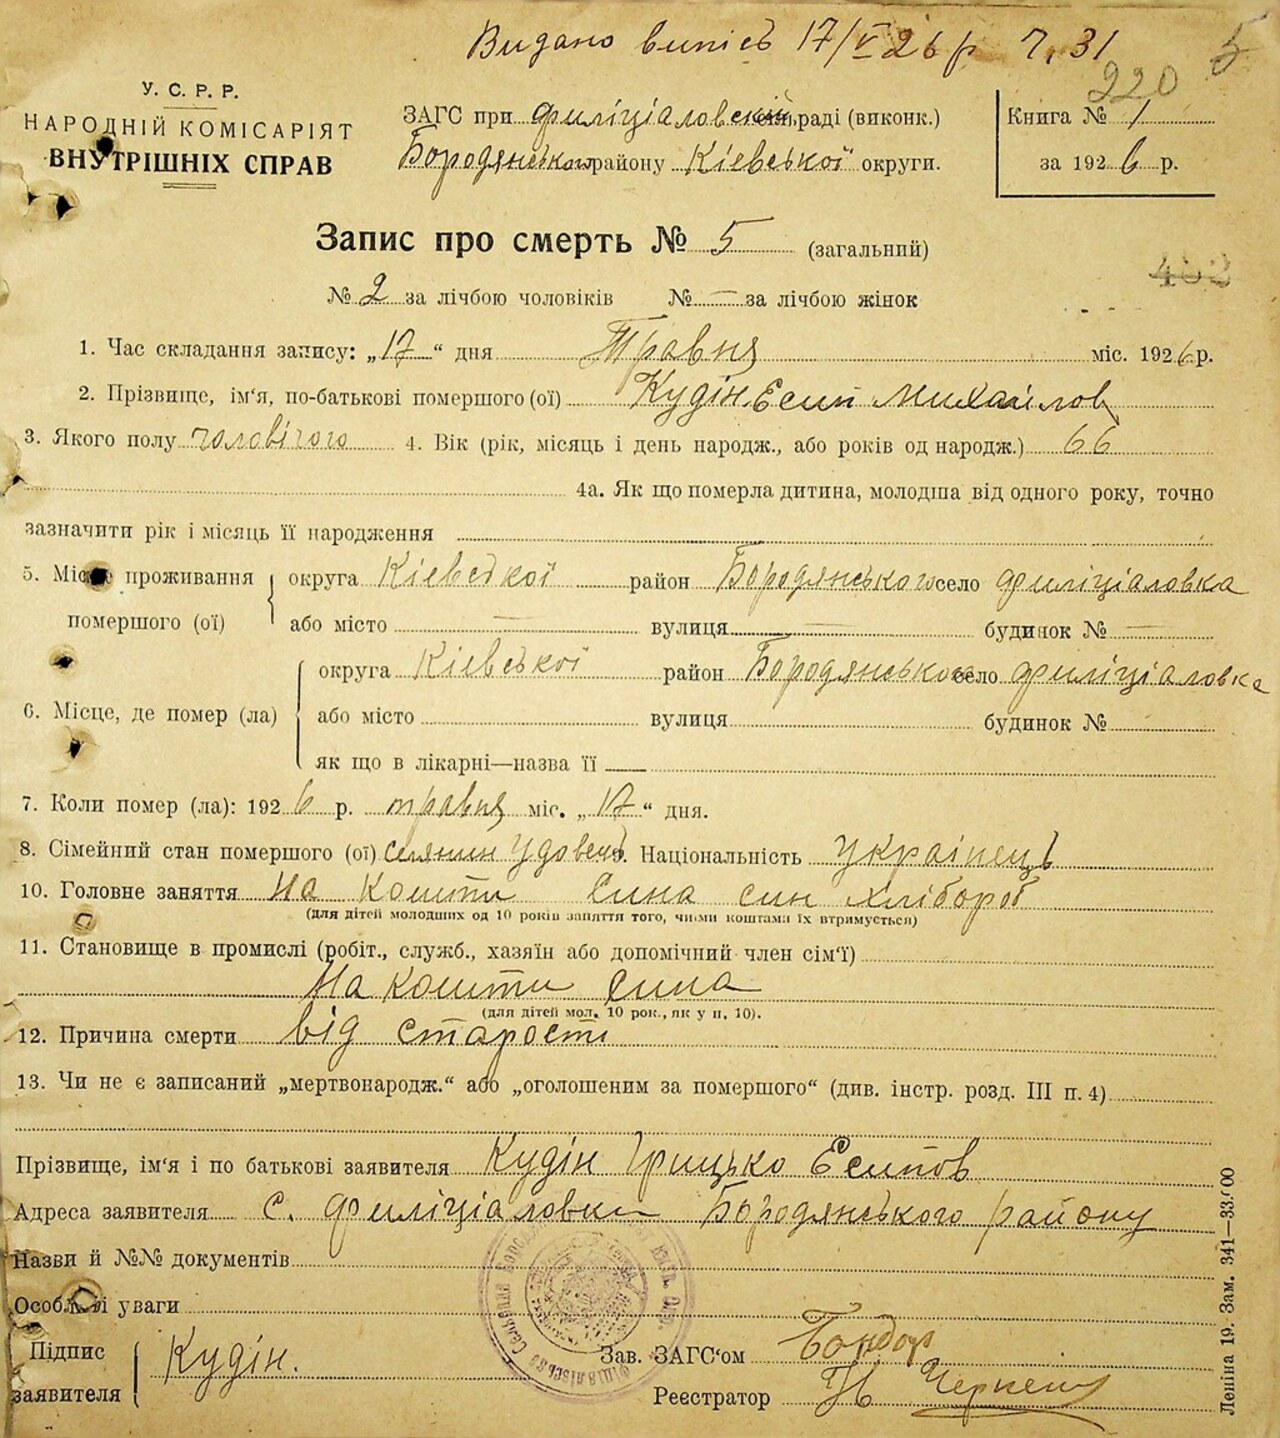 Видано випісь 17/V 26 р Ч. 31
5
220
У. С. Р. Р.
НАРОДНІЙ КОМІСАРІЯТ
ВНУТРІШНІХ СПРАВ
ЗАГС при филіціаловській раді (виконк.)
Бородянського району Кіевської округи.
Книга № 1
за 1926 р.
Запис про смерть № 5 (загальний)
402
№ 2 за лічбою чоловіків № — за лічбою жінок
1. Час складання запису: „17“ дня Травня міс. 1926 р.
2. Прізвище, ім‘я, по-батькові помершого (ої) Кудін Есип Михайлов
3. Якого полу чоловічого 4. Вік (рік, місяць і день народж., або років од народж.) 66
4а. Як що померла дитина, молодша від одного року, точно
зазначити рік і місяць її народження
5. Місце проживання помершого (ої) округа Кіевської район Бородянського село филіціаловка
або місто — вулиця — будинок № —
6. Місце, де помер (ла) округа Кіевської район Бородянського село филіціаловка
або місто вулиця будинок № —
як що в лікарні—назва її —
7. Коли помер (ла): 1926 р. травня міс. „17“ дня.
8. Сімейний стан помершого (ої) селянин Удовець 9. Національність Українець
10. Головне заняття На кошти сина син хлібороб
(для дітей молодших од 10 років заняття того, чиїми коштами їх втримується)
11. Становище в промислі (робіт., служб., хазяїн або допомічний член сім‘ї)
На кошти сина
(для дітей мол. 10 рок., як у п. 10).
12. Причина смерти від старости
13. Чи не є записаний „мертвонародж.“ або „оголошеним за помершого“ (див. інстр. розд. III п. 4)
Прізвище, ім‘я і по батькові заявителя Кудін Грицько Есипов
Адреса заявителя с. филіціаловки Бородянського району
Назви й №№ документів
Особливі уваги
Підпис заявителя Кудін.
Зав. ЗАГС‘ом Бондар
Реєстратор
Леніна 19. Зам. 341—33.000